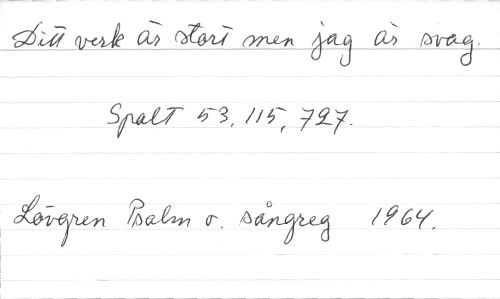 Ditt verk är stort men jag är svag.
Spalt 53, 115, 727.
Lövgren Psalm o. sångreg 1964.